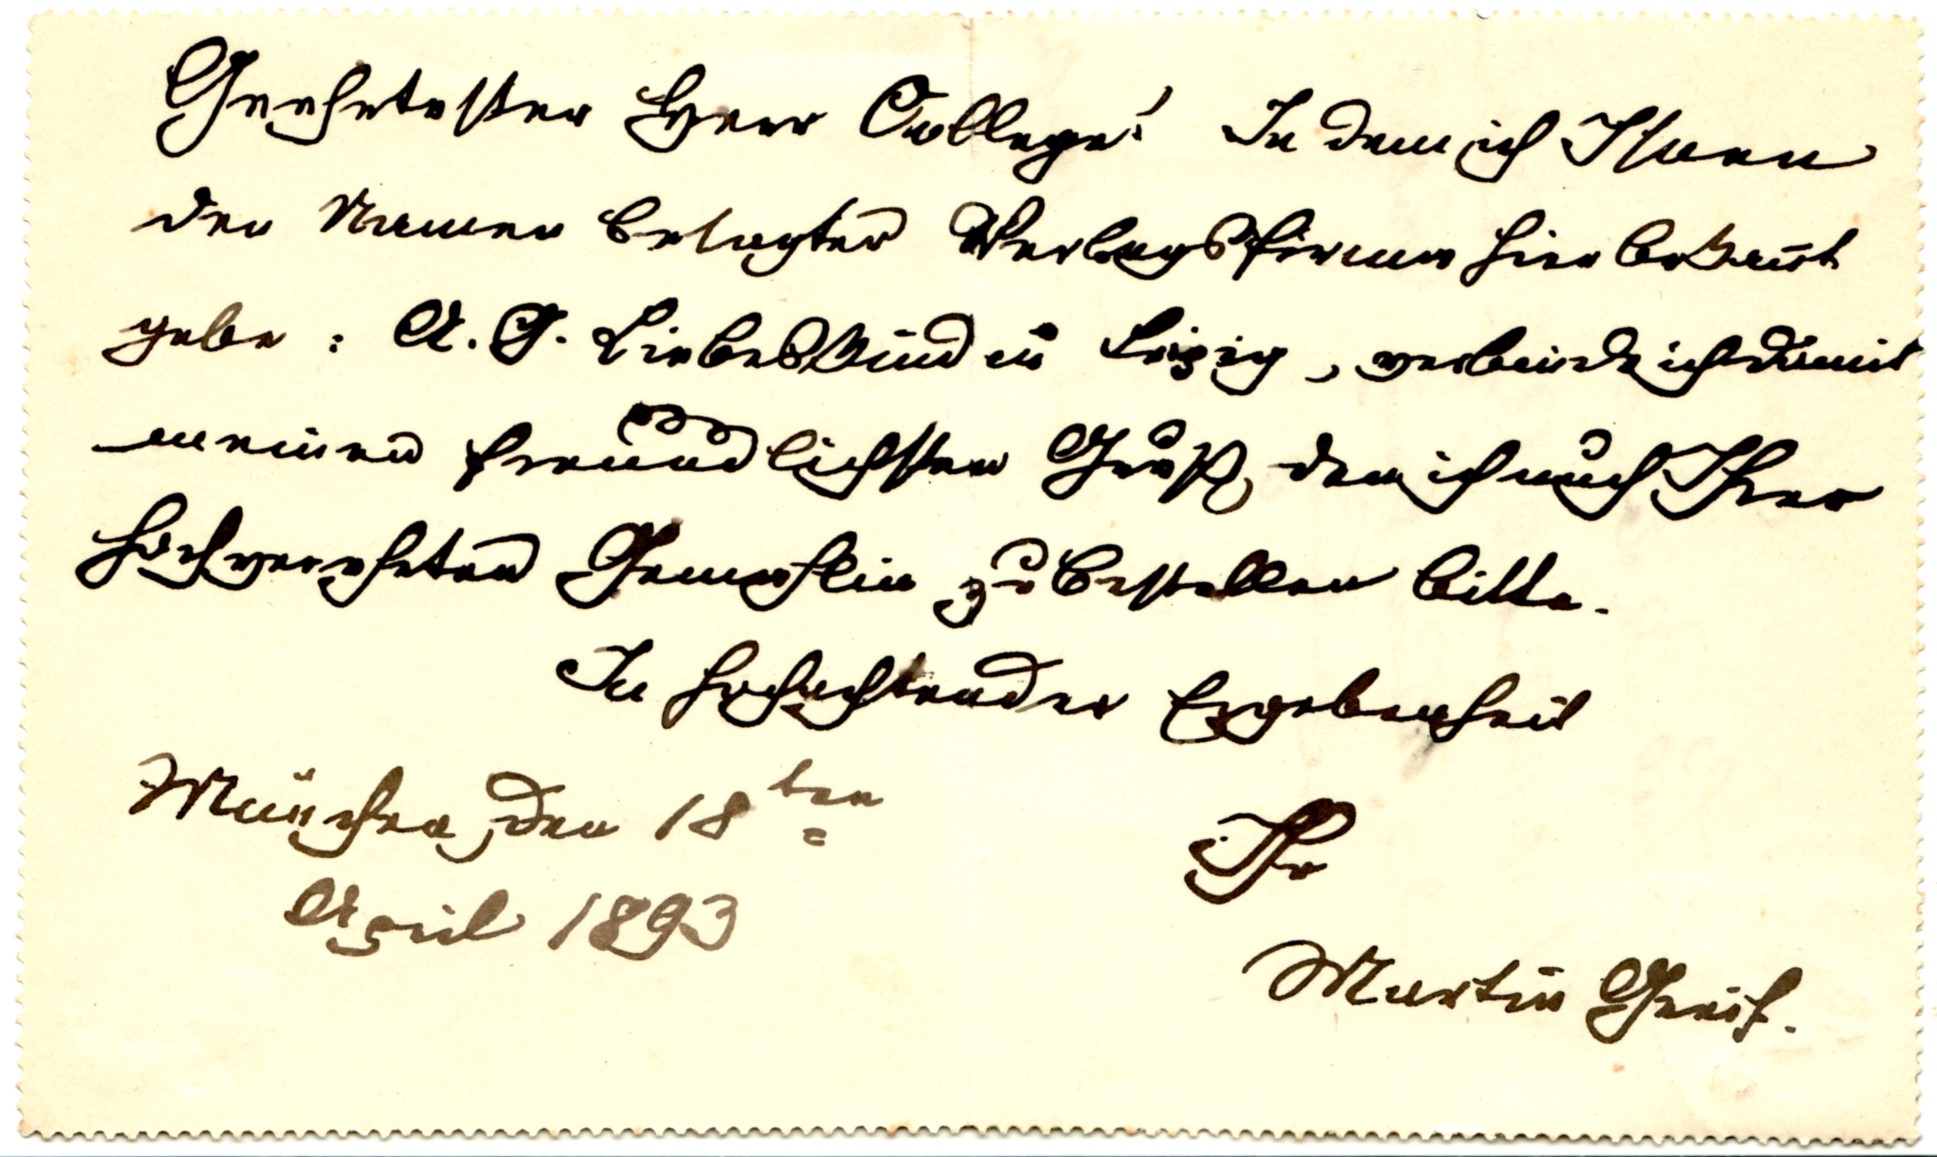 Geehrtester Herr College! In dem ich Ihnen
den Namen besagter Verlagsfirma hier bekannt
gebe : A. G. Liebeskind in Leipzig, verbinde ich damit
meinen freundlichsten Gruß, den ich auch Ihrer
hochverehrten Gemahlin zu bestellen bitte.
In hochachtender Ergebenheit
München, den 18ten
Ihr
April 1893
Martin Greif.